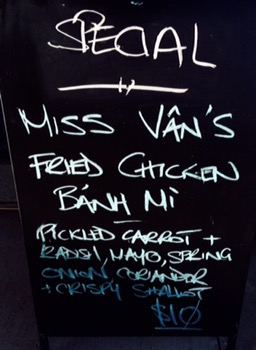 SPECIAL
MISS VÂN'S
FRIED CHICKEN
BÁNH MÌ
PICKLED CARROT +
RADISH, MAYO, SPRING
ONION CORIANDER
+ CRISPY SHALLOT
$10